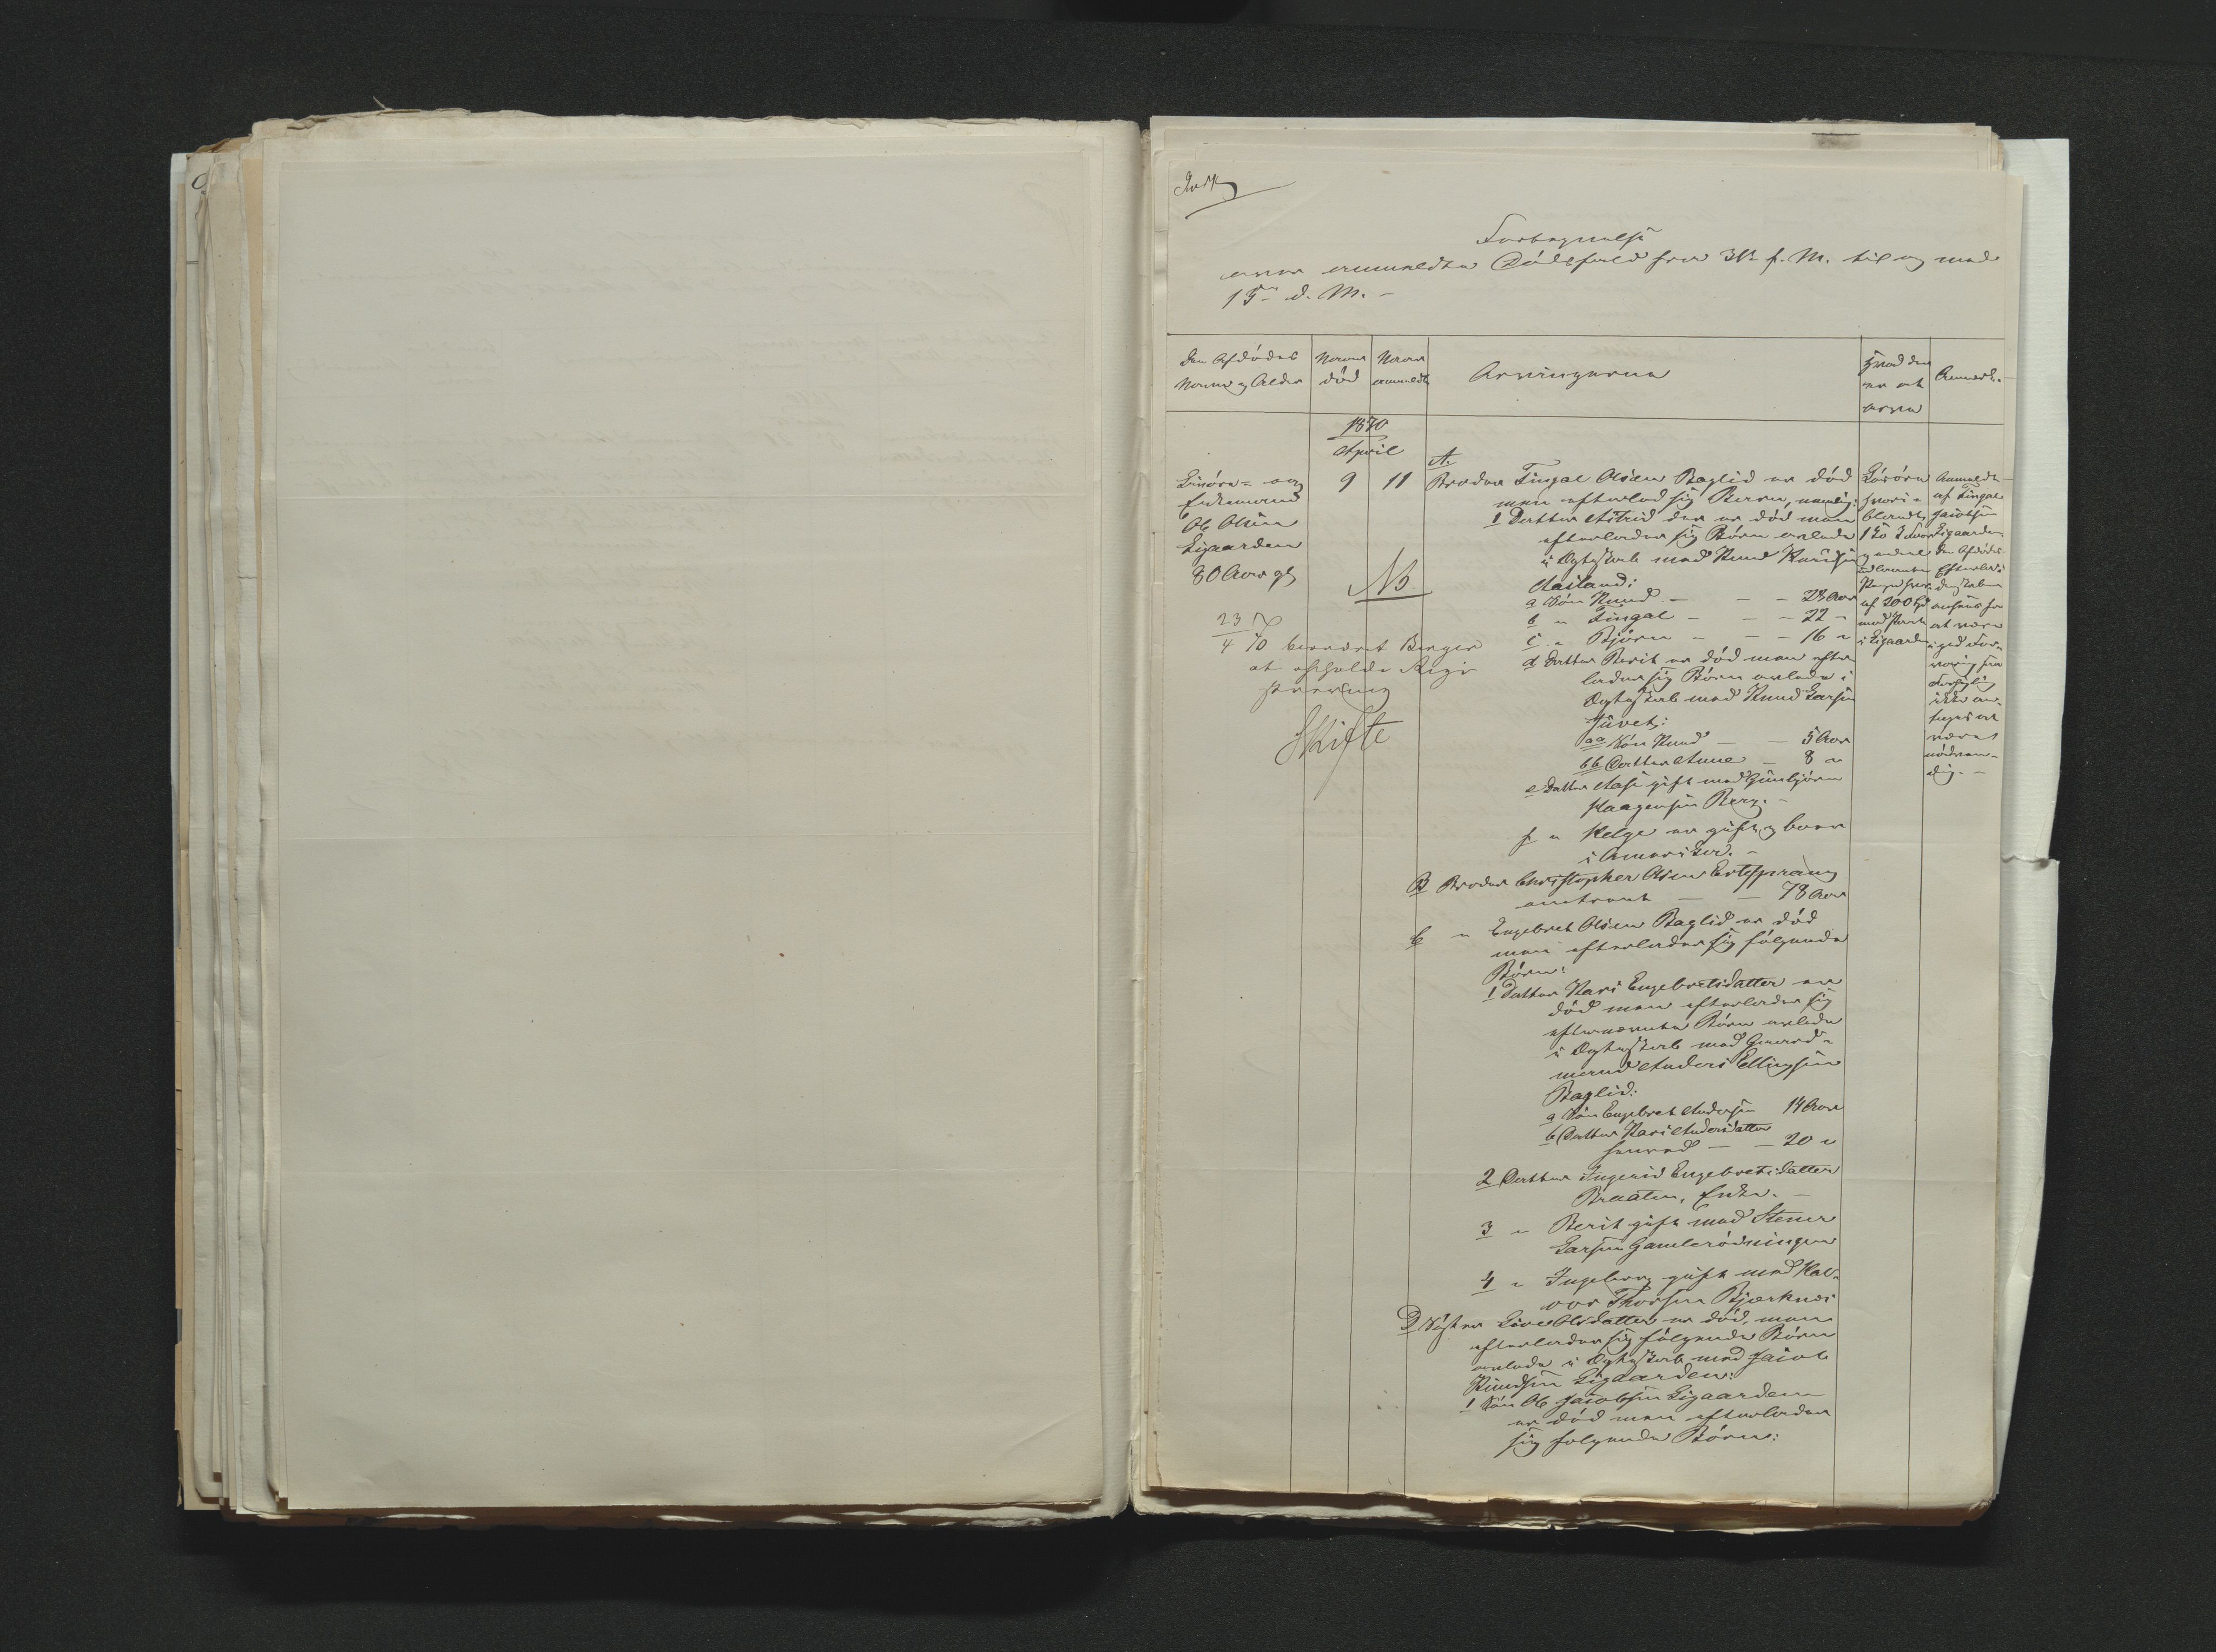 Fortegnelse
over anmeldte Dödsfald fra 31te f. M. til og med
15de d. M. –
Den Afdödes
Navn og Alder
Naar
död
Naar
anmeldt
Arvingerne
Hvad der
er at
arve
Anmærk.
1870
April
Enkemand
Ole Olsen
Ligaarden
80 Aar gl
9
11
NB
23
4 70 beordret Berger
at afholde Regi-
strering
Skifte
A.
Broder Tingel Olsen Baglid er död
men efterlod sig Börn, nemlig:
1 Datter Astrid der er död men
efterlader sig Börn avlede
i Ægteskab med Knud Knudsen
Aasland:
a Sön Knud – – – 28 Aar
b " Tingel – – – 22 "
c " Björn – – – 16 "
d Datter Berit er död men efter-
lader sig Börn avlede i
Ægteskab med Knud Larsen
Juvet:
aa Sön Knud – – 5 Aar
bb Datter Anne – 8 "
e Datter Aase gift med Gunbjörn
Haagensen Berg. –
f " Helge er gift og boer
i Amerika. –
B Broder Christopher Olsen Estesprang
omtrent – – 78 Aar
C " Engebret Olsen Baglid er död
men efterlader sig fölgende
Börn:
1 Datter Kari Engebretsdatter er
död men efterlader sig
efternævnte Börn avlede
i Ægteskab med Gaard-
mand Anders Ellingsen
Baglid:
a Sön Engebret Andersen 14 Aar
b Datter Kari Andersdatter
– – 20 "
2 Datter Ingerid Engebretsdatter
Braaten, Enke. –
3 " Berit gift med Stener
Larsen Gamlerödningen
4 " Ingeborg gift med Hal-
vor Thorsen Bjerknes
D Söster Live Olsdatter er död, men
efterlader sig fölgende Börn
avlede i Ægteskab med Jacob
Knudsen Ligaarden:
1 Sön Ole Jacobsen Ligaarden
er död men efterlader
sig folgende Börn:
Lösöre
1 Ko 3 Faar
og andel
af 200 Spd
med Pant
i Ligaarden
Anmeldt
af Tingel
Jacobsen
Ligaarden
Den Afdödes
Efterla-
denskaber
ansees for
at være
i god For-
varing saa
Forsegling
ikke an-
toges at
være
nödven-
dig. –